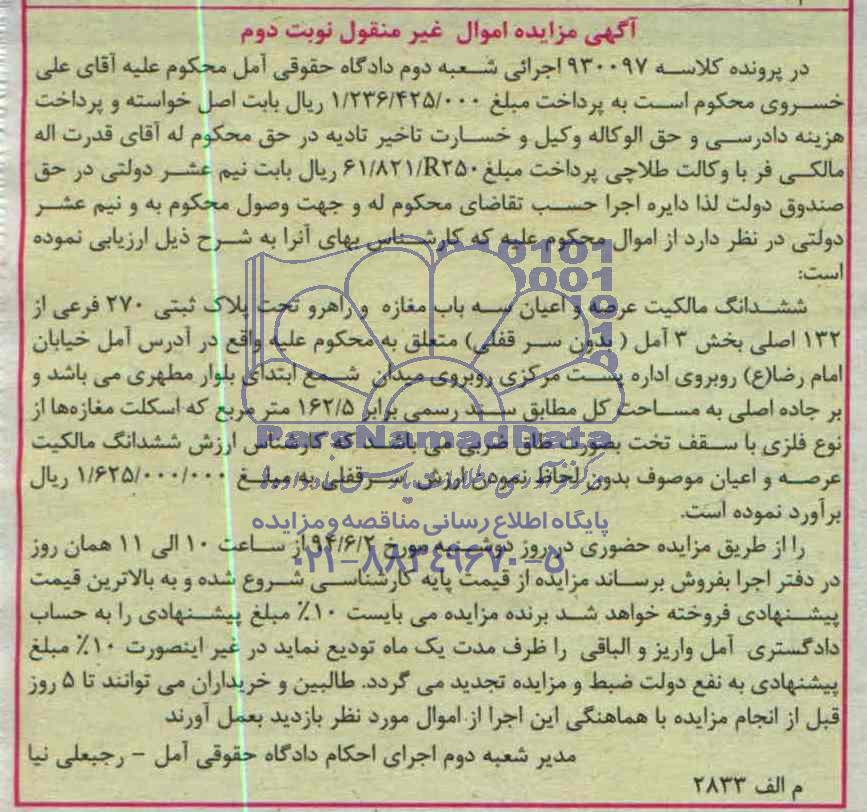 آگهی مزایده اموال غیر منقول نوبت دوم
در پرونده کلاسه ۹۳۰۰۹۷ اجرائی شعبه دوم دادگاه حقوقی آمل محکوم علیه آقای علی
خسروی محکوم است به پرداخت مبلغ ۱/۲۳۶/۴۲۵/۰۰۰ ریال بابت اصل خواسته و پرداخت
هزینه دادرسی و حق الوکاله وکیل و خسارت تاخیر تادیه در حق محکوم له آقای قدرت اله
مالکی فر با وکالت طلاچی پرداخت مبلغ ۶۱/۸۲۱/R۲۵۰ ریال بابت نیم عشر دولتی در حق
صندوق دولت لذا دایره اجرا حسب تقاضای محکوم له و جهت وصول محکوم به و نیم عشر
دولتی در نظر دارد از اموال محکوم علیه که کارشناس بهای آنرا به شرح ذیل ارزیابی نموده
است:
ششدانگ مالکیت عرصه و اعیان سه باب مغازه و راهرو تحت پلاک ثبتی ۲۷۰ فرعی از
۱۳۲ اصلی بخش ۳ آمل ( بدون سر قفلی) متعلق به محکوم علیه واقع در آدرس آمل خیابان
امام رضا(ع) روبروی اداره پست مرکزی روبروی میدان شمع ابتدای بلوار مطهری می باشد و
بر جاده اصلی به مساحت کل مطابق سند رسمی برابر ۱۶۲/۵ متر مربع که اسکلت مغازه‌ها از
نوع فلزی با سقف تخت بصورت طاق ضربی می باشد که کارشناس ارزش ششدانگ مالکیت
عرصه و اعیان موصوف بدون لحاظ نمودن ارزش سرقفلی به مبلغ ۱/۶۲۵/۰۰۰/۰۰۰ ریال
برآورد نموده است.
را از طریق مزایده حضوری در روز دوشنبه مورخ ۹۴/۶/۲ از ساعت ۱۰ الی ۱۱ همان روز
در دفتر اجرا بفروش برساند مزایده از قیمت پایه کارشناسی شروع شده و به بالاترین قیمت
پیشنهادی فروخته خواهد شد برنده مزایده می بایست ۱۰٪ مبلغ پیشنهادی را به حساب
دادگستری آمل واریز و الباقی را ظرف مدت یک ماه تودیع نماید در غیر اینصورت ۱۰٪ مبلغ
پیشنهادی به نفع دولت ضبط و مزایده تجدید می گردد. طالبین و خریداران می توانند تا ۵ روز
قبل از انجام مزایده با هماهنگی این اجرا از اموال مورد نظر بازدید بعمل آورند
مدیر شعبه دوم اجرای احکام دادگاه حقوقی آمل - رجبعلی نیا
م الف ۲۸۳۳
ParsNamadData
پایگاه اطلاع رسانی مناقصه و مزایده
۰۲۱-۸۸۳۴۹۶۷۰-۵